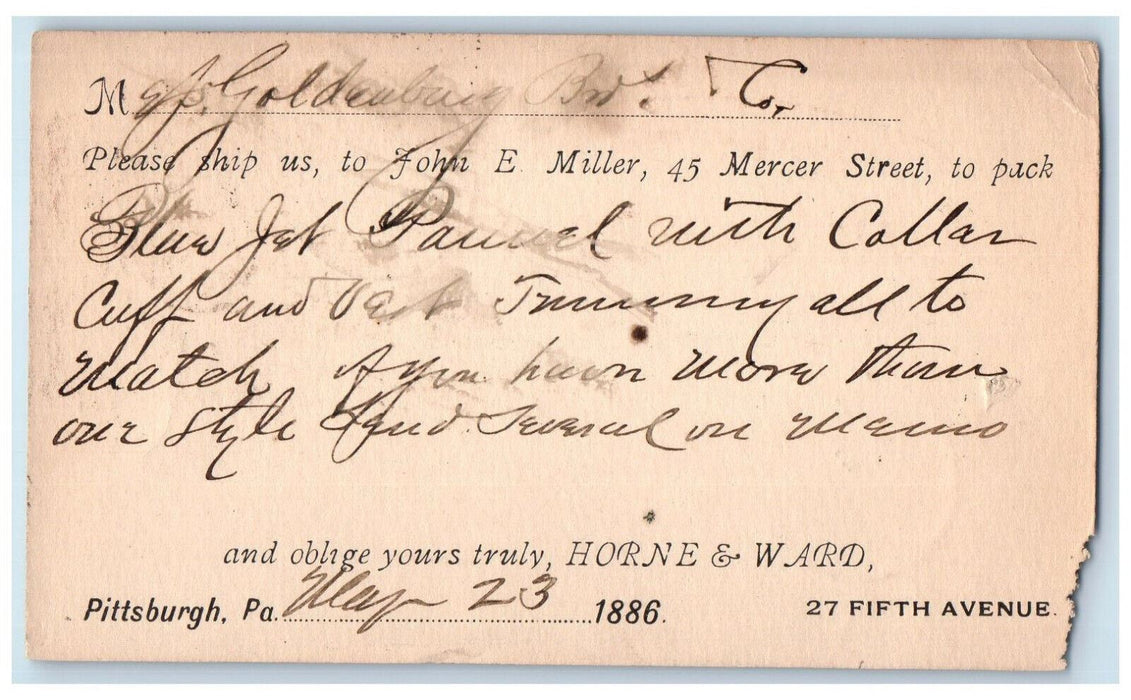 Messrs. Goldenburg Bro. & Co.
Please ship us, to John E. Miller, 45 Mercer Street, to pack
Blue Jet Pannel with Collar
Cuff and Vest Trimming all to
Match If you have more than
one style Send Several on Memo
and oblige yours truly, HORNE & WARD,
Pittsburgh, Pa. May 23 1886. 27 FIFTH AVENUE.